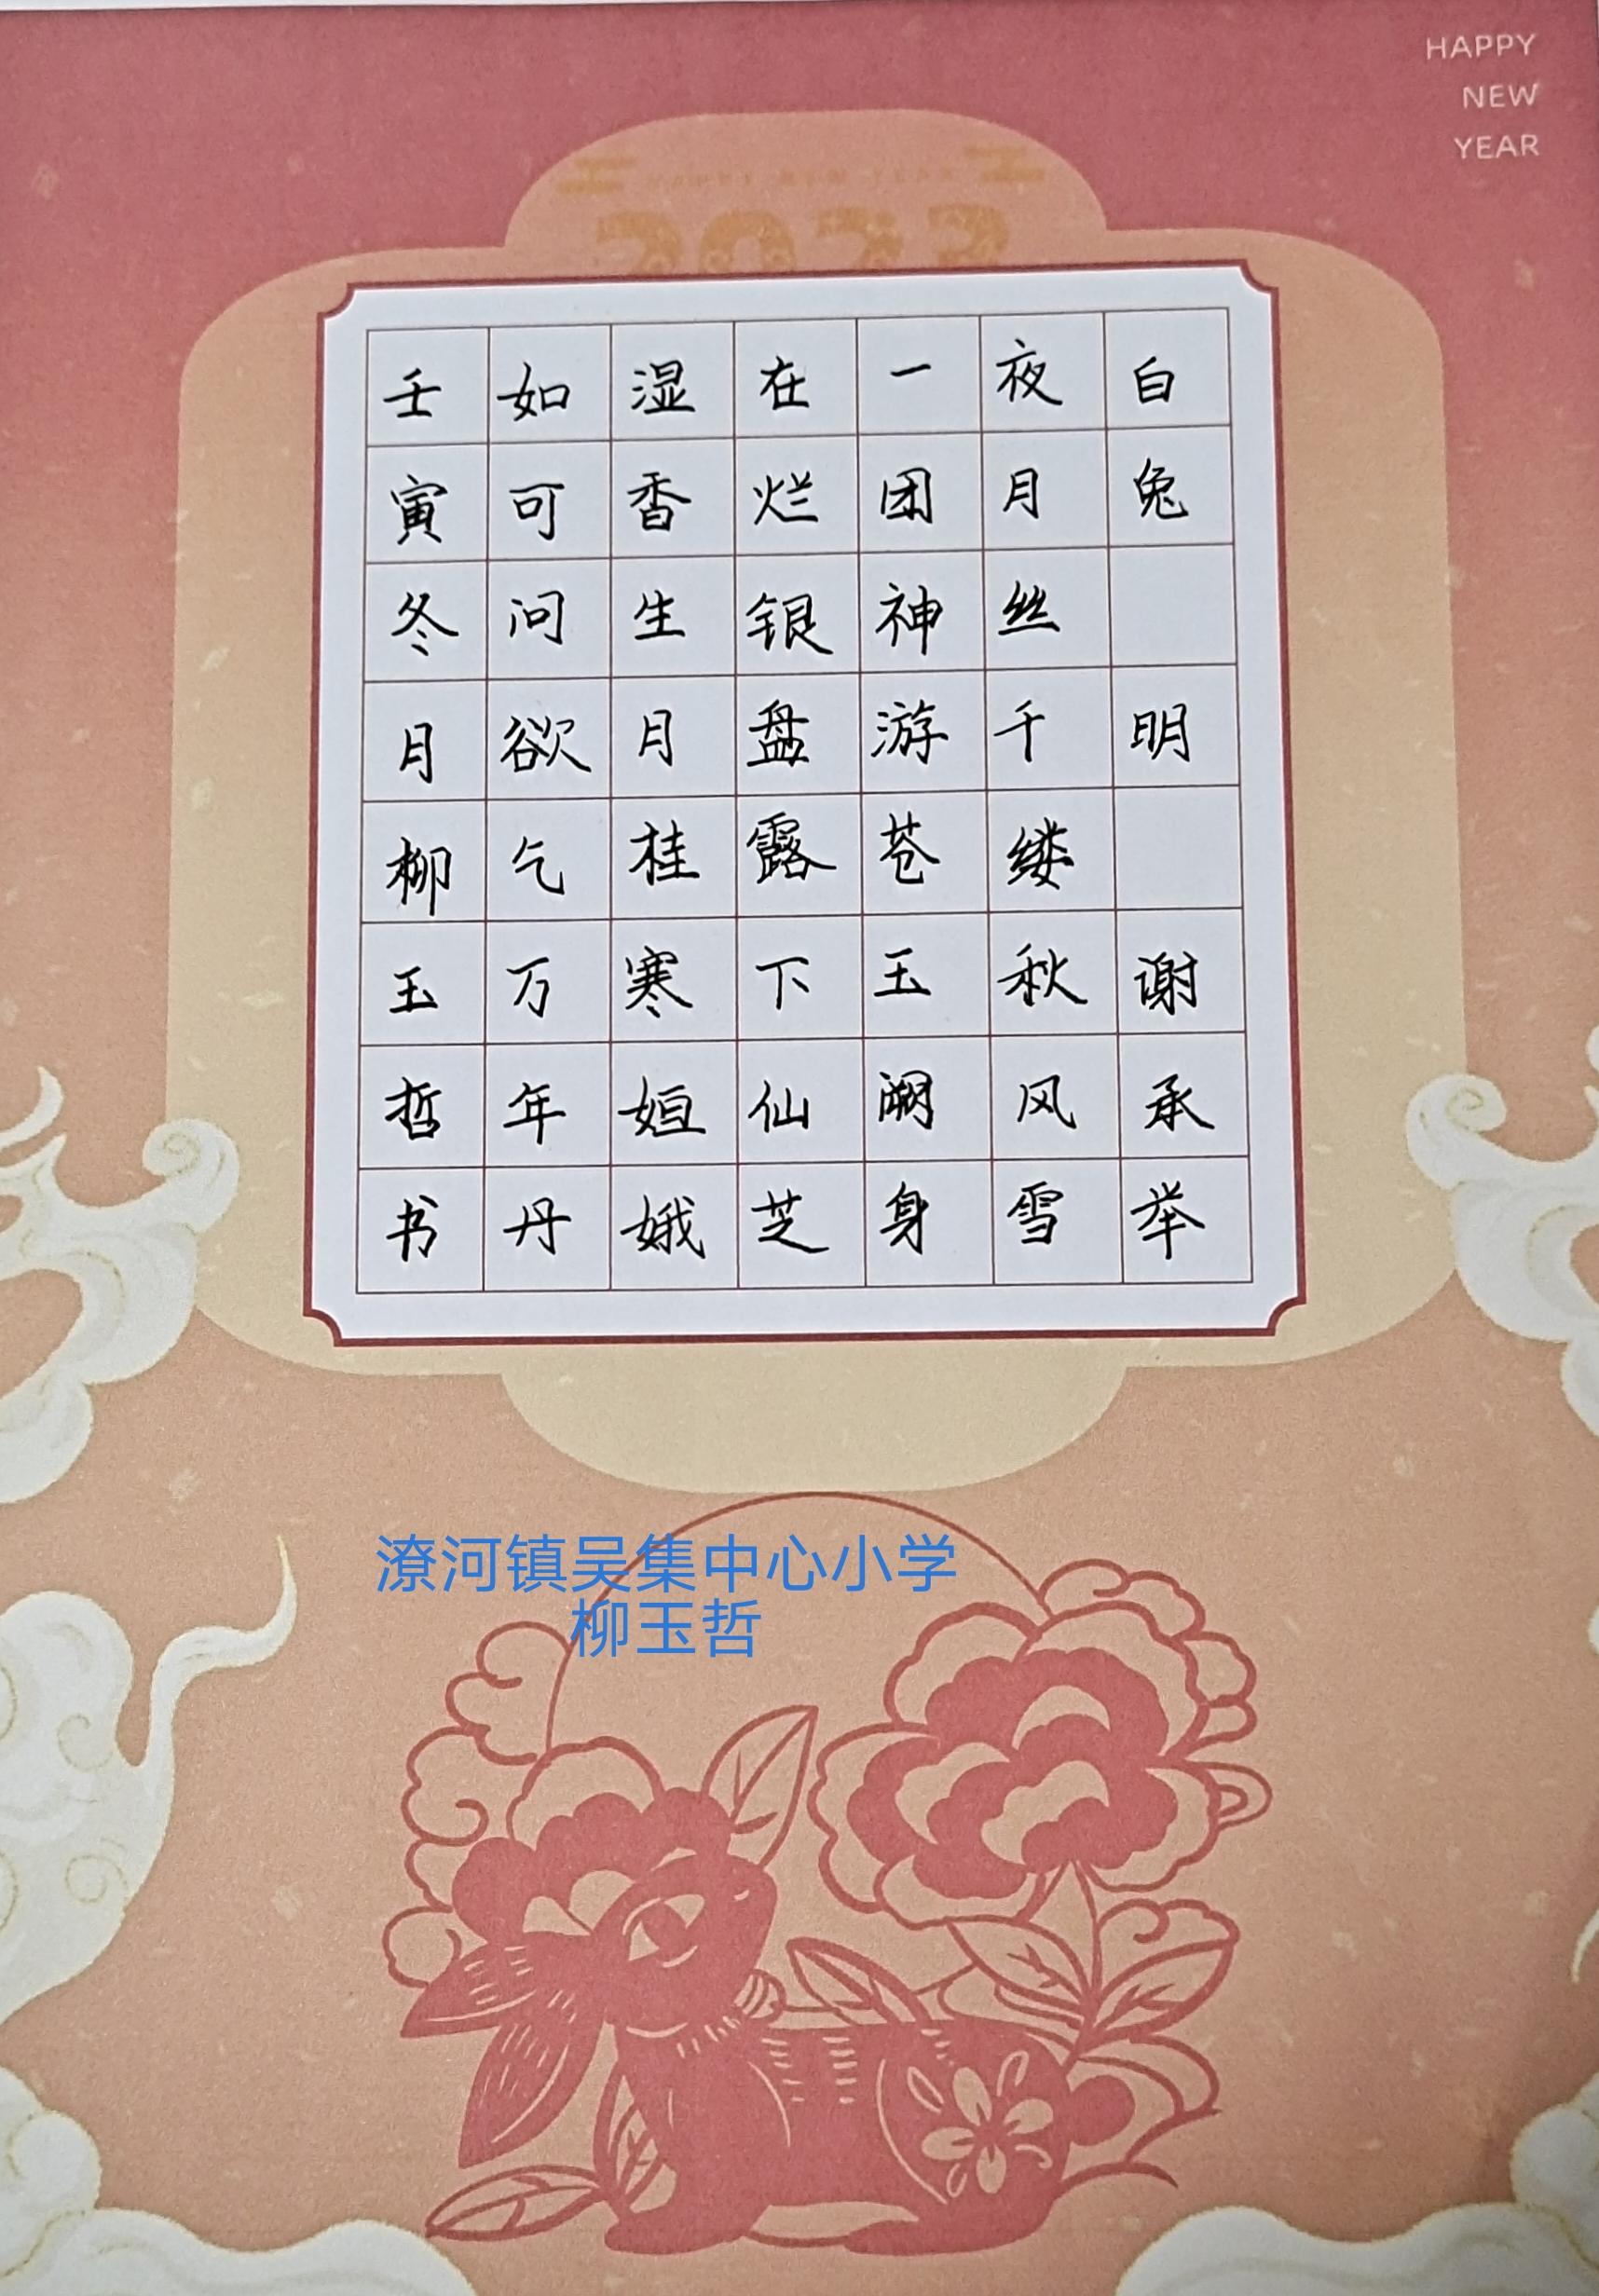 HAPPY
NEW
YEAR
2023
白兔 明 谢承举
夜月丝千缕秋风雪
一团神游苍玉阙身
在烂银盘露下仙芝
湿香生月桂寒姮娥
如可问欲乞万年丹
壬寅冬月柳玉哲书
潦河镇吴集中心小学
柳玉哲